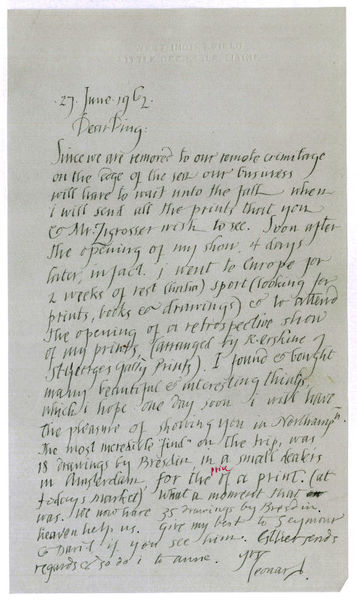 27 June 1962.
Dear Ping:
Since we are removed to our remote
on the edge of the sea our business
will have to wait unto the fall when
i will send all the prints that you
& Mr. Zigrosser wish to see. Soon after
the opening of my show, 4 days
later, in fact, i went to Europe for
2 weeks of rest (haha) sport (looking for
prints, books & drawings) & to attend
the opening of a retrospective show
of my prints (arranged by R. erskine of
St Georges Gally Prints). I found & bought
many beautiful & interesting things
which i hope one day soon i will have
the pleasure of showing you in Northampn.
The most incredible "find" on the trip, was
18 drawings by Bresdin in a small dealers
in Amsterdam for the price of a print. (at
todays market) What a moment that
was. We now have 35 drawings by Bresdin.
heaven help us. Give my best to Seymour
& if you see him. sends
regards & so do i to anne. Yrs
Leonard.